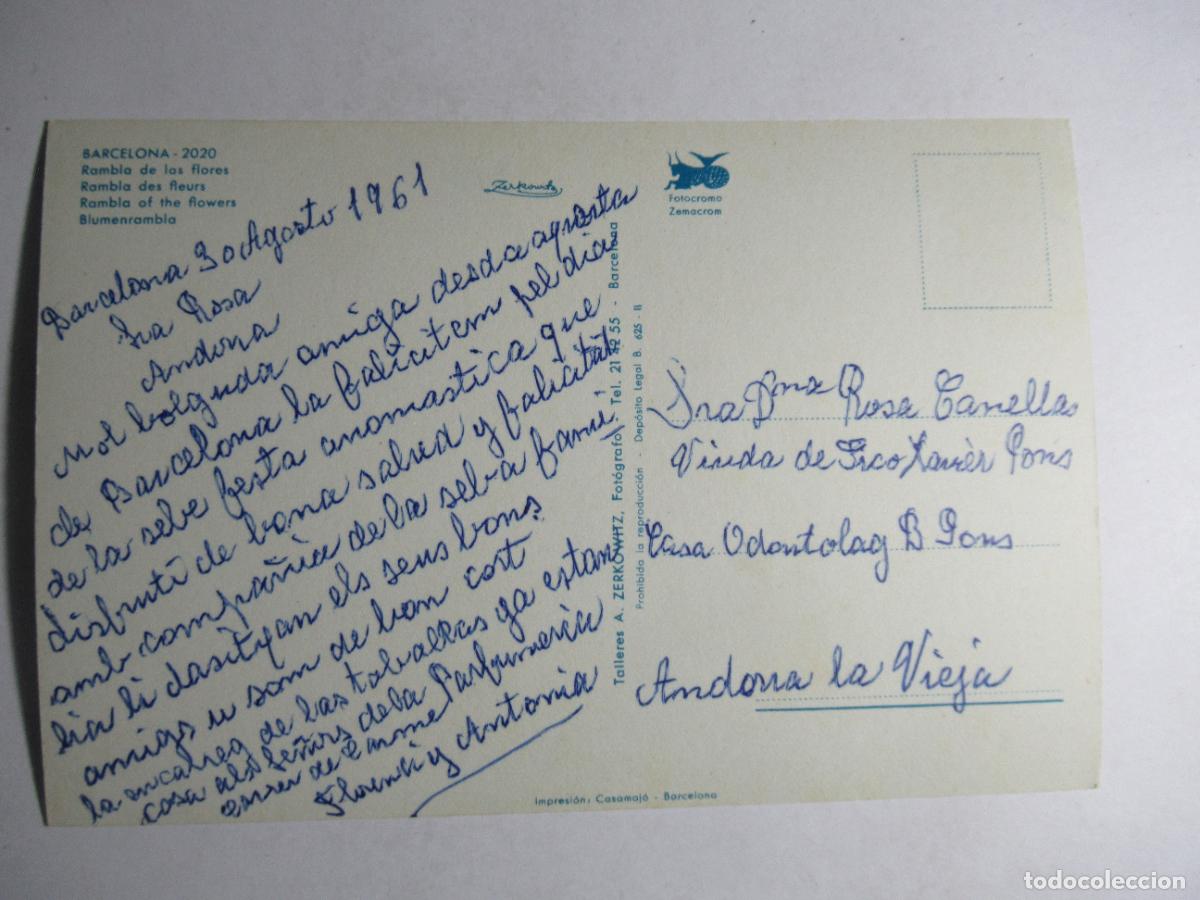 BARCELONA - 2020
Rambla de las flores
Rambla des fleurs
Rambla of the flowers
Blumenrambla
Zerkowitz
Fotocromo
Zemacrom
Barcelona 30 Agosto 1961
Sra Rosa
Andorra
Mol bolguda amiga desda aquesta
de Barcelona la falicitem pel dia
de la sebe festa anomastica que
disfruti de bona salud y falicitat
amb compañia de la seba fami
lia li dasityan els seus bons
amigs u som de bon cort
la encarreg de las toballas ya estan
casa als señors de la Parfumeria
carrer de Carme
Florenti y Antonia
Talleres A. ZERKOWITZ, Fotógrafo - Tel. 21 42 55 - Barcelona
Prohibida la reproducción - Depósito Legal B. 625 - II
Sra Dna Rosa Canellas
Viuda de Frco Xavier Pons
Casa Odontolag B Pons
Andorra la Vieja
Impresión: Casamajó - Barcelona
todocoleccion